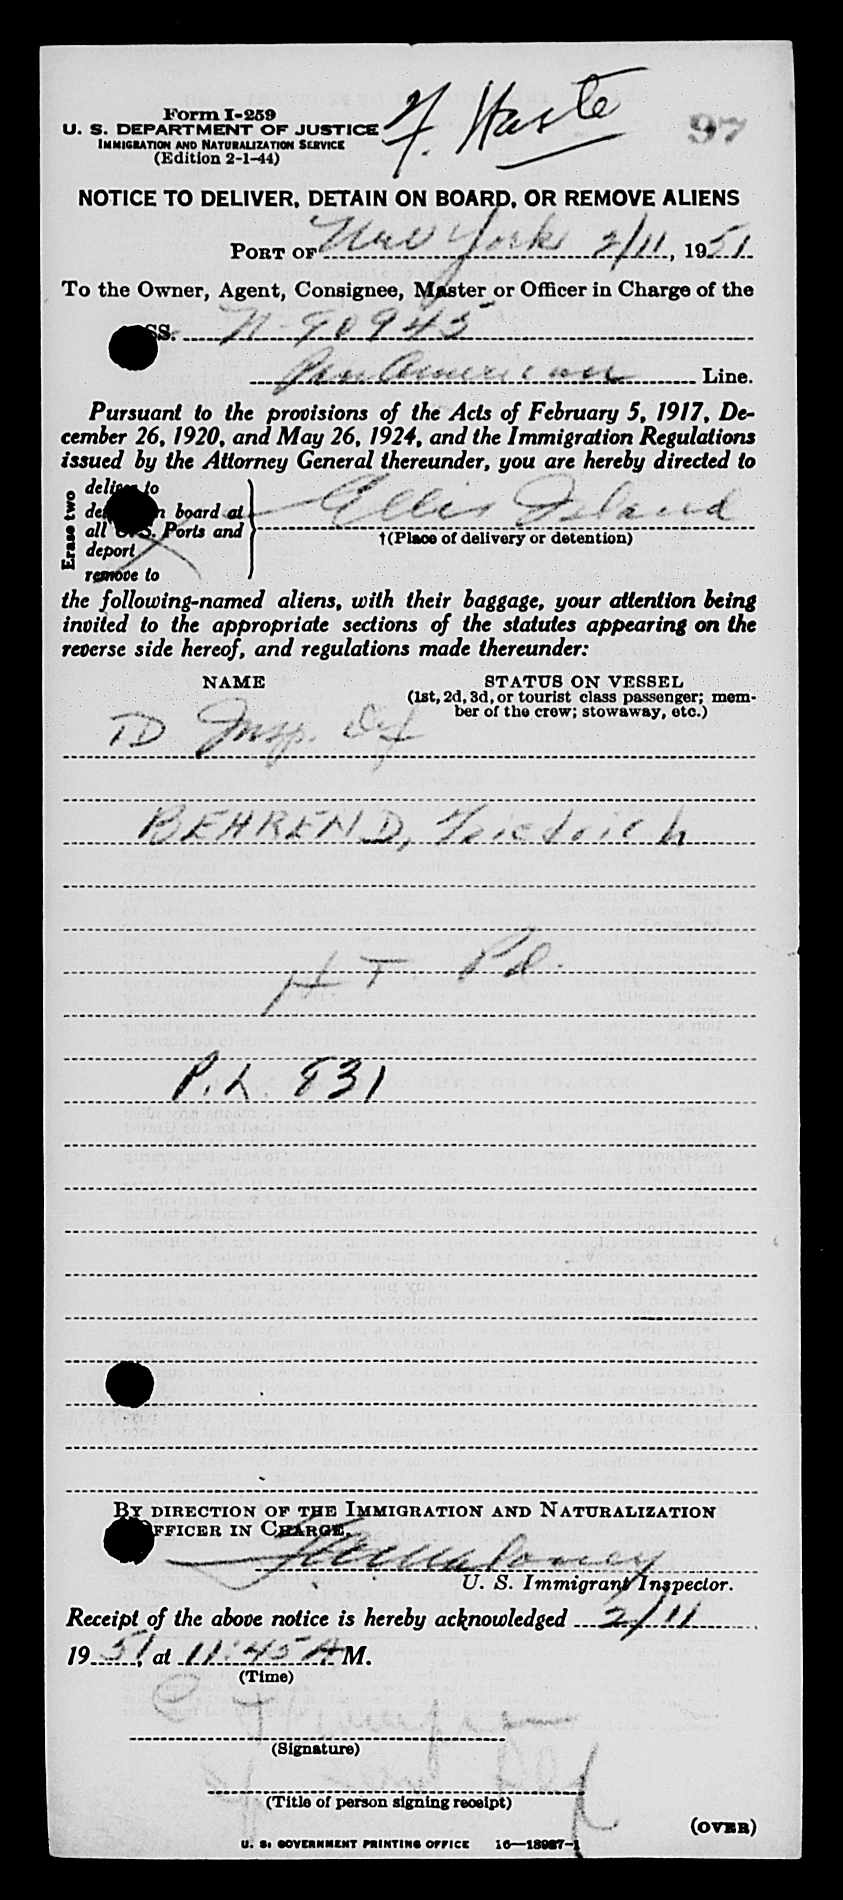 Form I-259
U. S. DEPARTMENT OF JUSTICE
IMMIGRATION AND NATURALIZATION SERVICE
(Edition 2-1-44)
97
NOTICE TO DELIVER, DETAIN ON BOARD, OR REMOVE ALIENS
PORT OF New York 2/11, 1951
To the Owner, Agent, Consignee, Master or Officer in Charge of the
SS. N-90945
Pan American Line.
Pursuant to the provisions of the Acts of February 5, 1917, De-
cember 26, 1920, and May 26, 1924, and the Immigration Regulations
issued by the Attorney General thereunder, you are hereby directed to
Erase two
deliver to
detain on board at
all U.S. Ports and
deport
remove to
Ellis Island
†(Place of delivery or detention)
the following-named aliens, with their baggage, your attention being
invited to the appropriate sections of the statutes appearing on the
reverse side hereof, and regulations made thereunder:
NAME STATUS ON VESSEL
(1st, 2d, 3d, or tourist class passenger; mem-
ber of the crew; stowaway, etc.)
TD Insp.
BEHREND, Friedrich
HT. Pd.
P.L. 831
BY DIRECTION OF THE IMMIGRATION AND NATURALIZATION
OFFICER IN CHARGE.
U. S. Immigrant Inspector.
Receipt of the above notice is hereby acknowledged 2/11
1951, at 11:45 A M.
(Time)
(Signature)
(Title of person signing receipt)
(OVER)
U. S. GOVERNMENT PRINTING OFFICE 16—18987-1